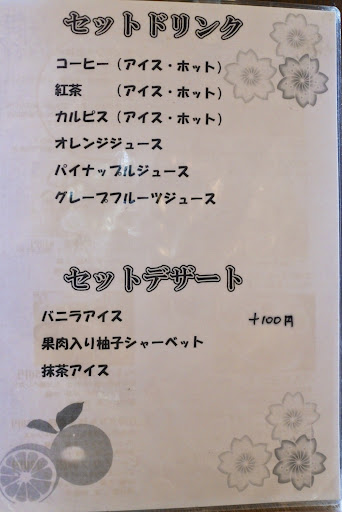 セットドリンク
コーヒー（アイス・ホット）
紅茶　　（アイス・ホット）
カルピス（アイス・ホット）
オレンジジュース
パイナップルジュース
グレープフルーツジュース
セットデザート
バニラアイス　　　＋100円
果肉入り柚子シャーベット
抹茶アイス